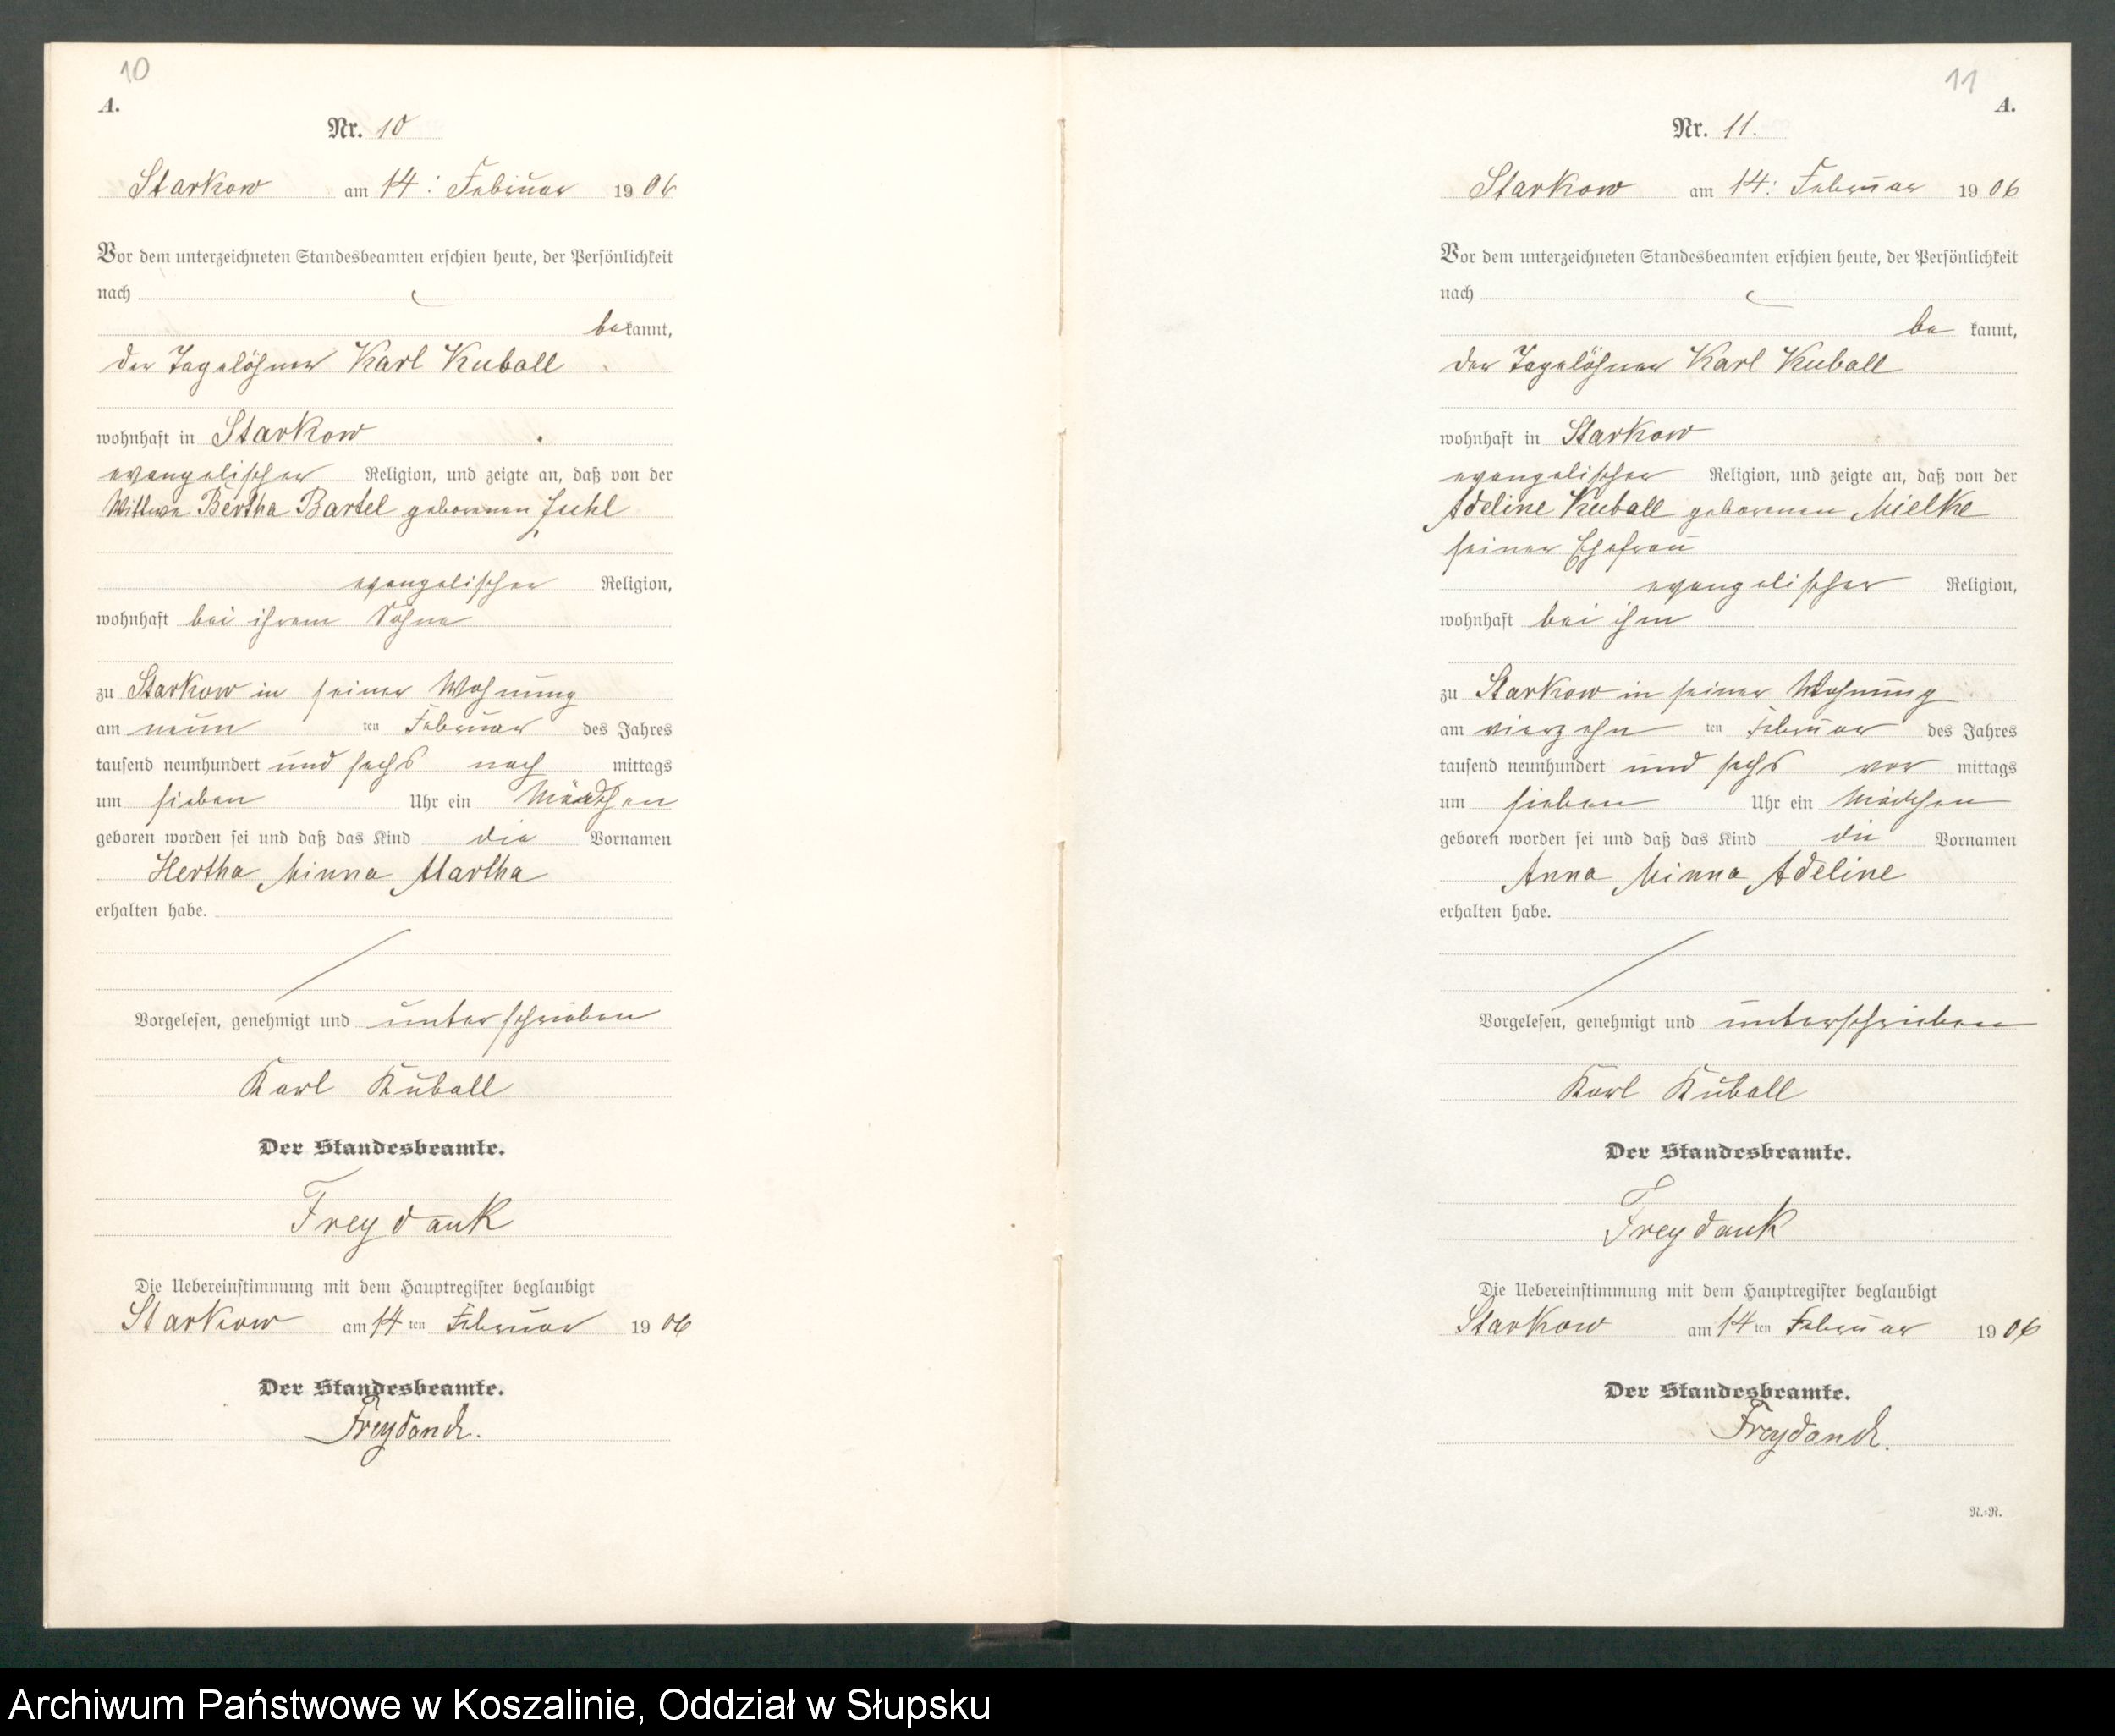 10
A.
Nr. 10
Starkow am 14. Februar 1906
Vor dem unterzeichneten Standesbeamten erschien heute, der Persönlichkeit
nach
bekannt,
der Tagelöhner Karl Kuball
wohnhaft in Starkow
evangelischer Religion, und zeigte an, daß von der
Wittwe Bertha Bartel geborenen Juhl
evangelischer Religion,
wohnhaft bei ihrem Sohne
zu Starkow in seiner Wohnung
am neun ten Februar des Jahres
tausend neunhundert und sechs nach mittags
um sieben Uhr ein Mädchen
geboren worden sei und daß das Kind die Vornamen
Hertha Minna Martha
erhalten habe.
Vorgelesen, genehmigt und unterschrieben
Karl Kuball
Der Standesbeamte.
Freydank
Die Uebereinstimmung mit dem Hauptregister beglaubigt
Starkow am 14 ten Februar 1906
Der Standesbeamte.
Freydank.
11
A.
Nr. 11.
Starkow am 14. Februar 1906
Vor dem unterzeichneten Standesbeamten erschien heute, der Persönlichkeit
nach
be kannt,
der Tagelöhner Karl Kuball
wohnhaft in Starkow
evangelischer Religion, und zeigte an, daß von der
Adeline Kuball geborenen Mielke
seiner Ehefrau
evangelischer Religion,
wohnhaft bei ihm
zu Starkow in seiner Wohnung
am vierzehn ten Februar des Jahres
tausend neunhundert und sechs vor mittags
um sieben Uhr ein Mädchen
geboren worden sei und daß das Kind die Vornamen
Anna Minna Adeline
erhalten habe.
Vorgelesen, genehmigt und unterschrieben
Karl Kuball
Der Standesbeamte.
Freydank
Die Uebereinstimmung mit dem Hauptregister beglaubigt
Starkow am 14 ten Februar 1906
Der Standesbeamte.
Freydank.
N.=N.
Archiwum Państwowe w Koszalinie, Oddział w Słupsku